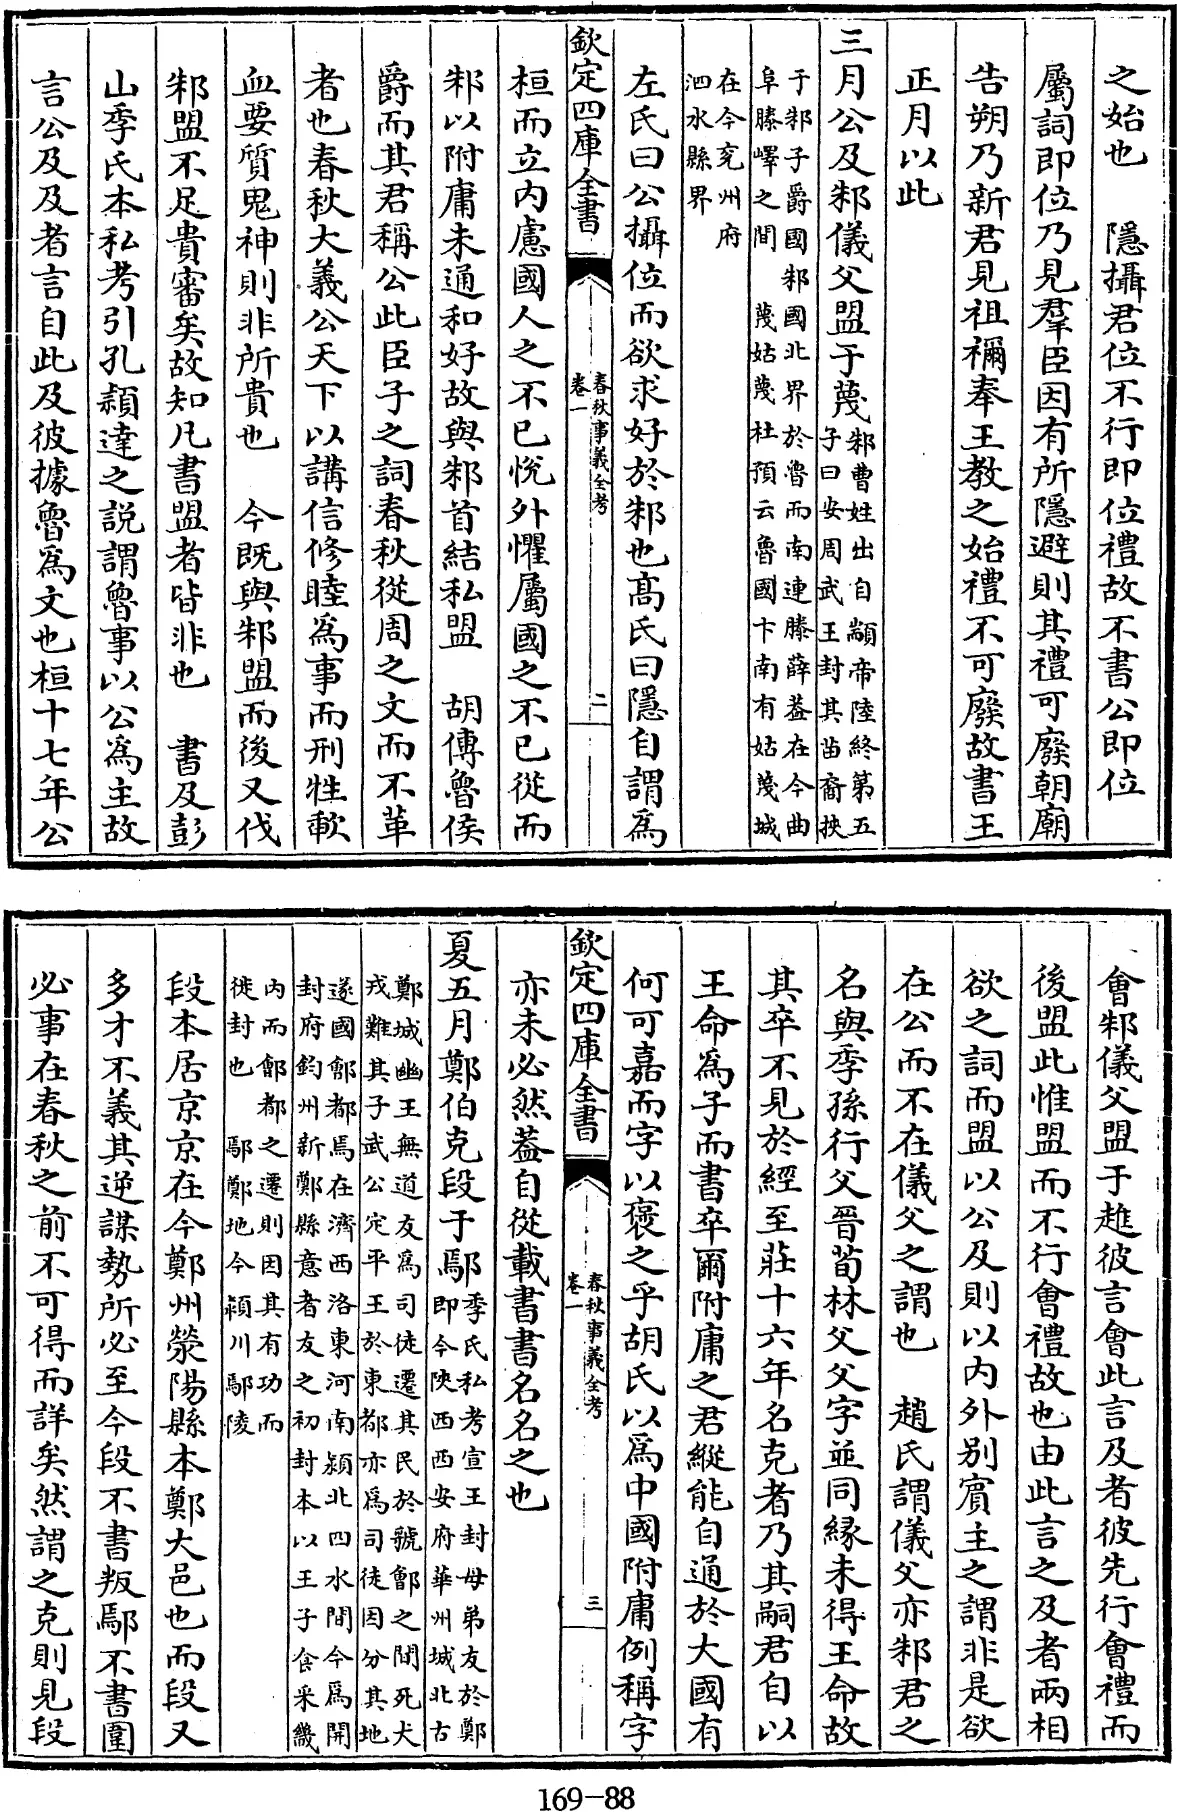 之始也　隱攝君位不行即位禮故不書公即位
屬詞即位乃見羣臣因有所隱避則其禮可廢朝廟
告朔乃新君見祖禰奉王教之始禮不可廢故書王
正月以此
三月公及邾儀父盟于蔑
邾曹姓出自顓帝陸終第五
子曰安周武王封其苗裔挾
于邾子爵國邾國北界於魯而南連滕薛蓋在今曲
阜滕嶧之間　蔑姑蔑杜預云魯國卞南有姑蔑城
在今兖州府
泗水縣界
左氏曰公攝位而欲求好於邾也髙氏曰隱自謂爲
欽定四庫全書
春秋事義全考
卷一
二
桓而立内慮國人之不已悦外懼屬國之不已從而
邾以附庸未通和好故與邾首結私盟　胡傳魯侯
爵而其君稱公此臣子之詞春秋從周之文而不革
者也春秋大義公天下以講信修睦爲事而刑牲歃
血要質鬼神則非所貴也　今既與邾盟而後又伐
邾盟不足貴審矣故知凡書盟者皆非也　書及彭
山季氏本私考引孔頴達之説謂魯事以公爲主故
言公及及者言自此及彼據魯爲文也桓十七年公
會邾儀父盟于趡彼言會此言及者彼先行會禮而
後盟此惟盟而不行會禮故也由此言之及者兩相
欲之詞而盟以公及則以内外别賓主之謂非是欲
在公而不在儀父之謂也　趙氏謂儀父亦邾君之
名與季孫行父晉荀林父父字並同縁未得王命故
其卒不見於經至莊十六年名克者乃其嗣君自以
王命爲子而書卒爾附庸之君縱能自通於大國有
何可嘉而字以褒之乎胡氏以爲中國附庸例稱字
欽定四庫全書
春秋事義全考
卷一
三
亦未必然蓋自從載書書名名之也
夏五月鄭伯克段于鄢
季氏私考宣王封母弟友於鄭
即今陜西西安府華州城北古
鄭城幽王無道友爲司徒遷其民於虢鄶之間死犬
戎難其子武公定平王於東都亦爲司徒因分其地
遂國鄶都焉在濟西洛東河南潁北四水間今爲開
封府鈞州新鄭縣意者友之初封本以王子食采畿
内而鄶都之遷則因其有功而
徙封也　鄢鄭地今潁川鄢陵
段本居京京在今鄭州滎陽縣本鄭大邑也而段又
多才不義其逆謀勢所必至今段不書叛鄢不書圍
必事在春秋之前不可得而詳矣然謂之克則見段
169-88